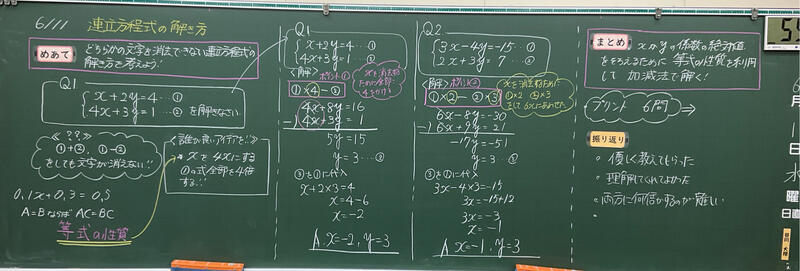 6/11 連立方程式の解き方
めあて どちらかの文字を消去できない連立方程式の
解き方を考えよう!
Q1
x+2y=4…①
4x+3y=1…② を解きなさい
≪??≫
①+②, ①-②
をしても文字が消えない!!
0.1x+0.3=0.5
A=BならばAC=BC
等式の性質
<誰か良いアイデアを!!>
xを4xにする
①の式全部を4倍
する!!
Q1
x+2y=4…①
4x+3y=1…②
<解> ポイント①
①×4-②
xを消去する
4x+8y=16
-) 4x+3y=1
5y=15
y=3…③
③を①に代入
x+2×3=4
x=4-6
x=-2
A. x=-2, y=3
Q2
3x-4y=-15…①
2x+3y=7…②
<解> ポイント②
①×2-②×3
xを消去するために
①×2 ②×3
をして6xにあわせた
6x-8y=-30
-) 6x+9y=21
-17y=-51
y=3…③
③を①に代入
3x-4×3=-15
3x=-15+12
3x=-3
x=-1
A. x=-1, y=3
まとめ xかyの係数の絶対値
をそろえるために等式の性質を利用
して加減法で解く!
プリント 6問 ⇒
振り返り
・優しく教えてもらった
・理解してくれてよかった
・両方に何倍かするのが難しい
・
6
月
日
水
曜
日直